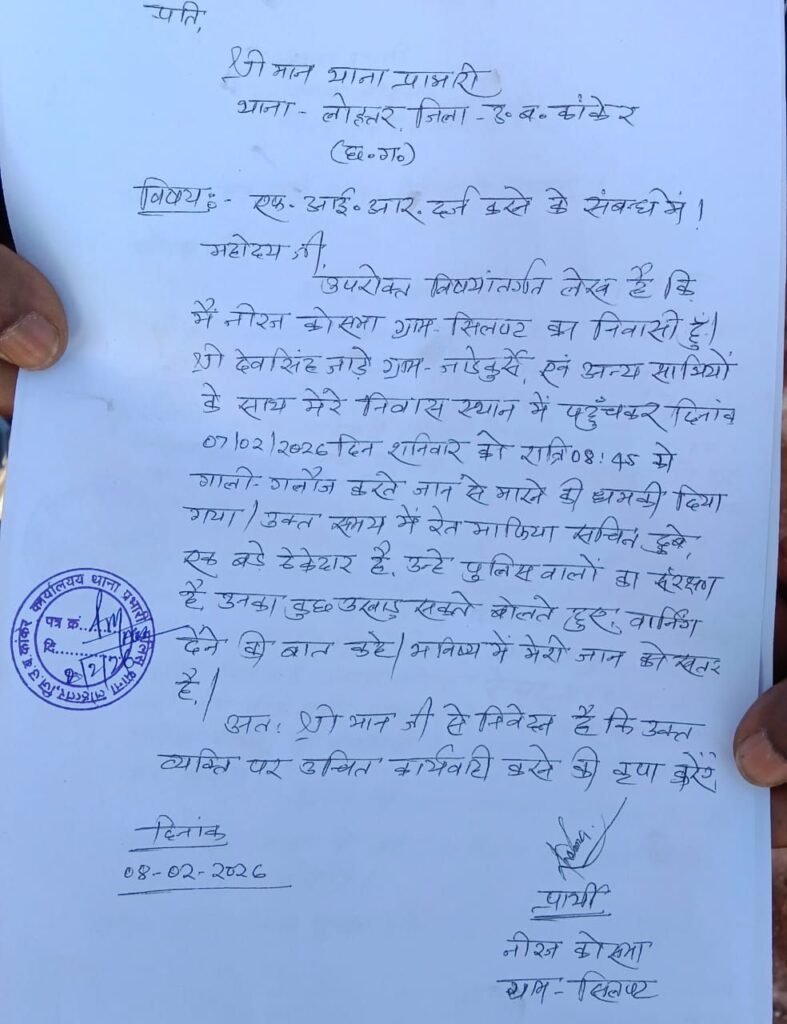 प्रति,
श्री मान थाना प्रभारी
थाना - लोहत्तर, जिला - उ. ब. कांकेर
(छ.ग.)
विषय :- एफ. आई. आर. दर्ज करने के संबन्ध में।
महोदय जी,
उपरोक्त विषयांतर्गत लेख है कि
मैं नीरज कोसमा ग्राम - सिलपट का निवासी हूँ।
श्री देवसिंह जाड़े ग्राम - जाडेकुर्से, एवं अन्य साथियों
के साथ मेरे निवास स्थान में पहुँचकर दिनांक
07/02/2026 दिन शनिवार को रात्रि 08:45 को
गाली-गलौज करते जान से मारने की धमकी दिया
गया। उक्त समय में रेत माफिया सचिन दुबे,
एक बडे ठेकेदार है. उन्हे पुलिस वालों का संरक्षण
है. उनका कुछ उखाड़ सकते बोलते हुए, वार्निंग
देने की बात कहे। भविष्य में मेरी जान को खतर
है।
अत: श्री मान जी से निवेदन है कि उक्त
व्यक्ति पर उचित कार्यवाही करने की कृपा करेंगे
कार्यालयय थाना प्रभारी
पत्र क्रं.....
दि.....
थाना लोहत्तर, जि. उ.ब. कांकेर
दिनांक
08-02-2026
प्रार्थी
नीरज कोसमा
ग्राम - सिलपट